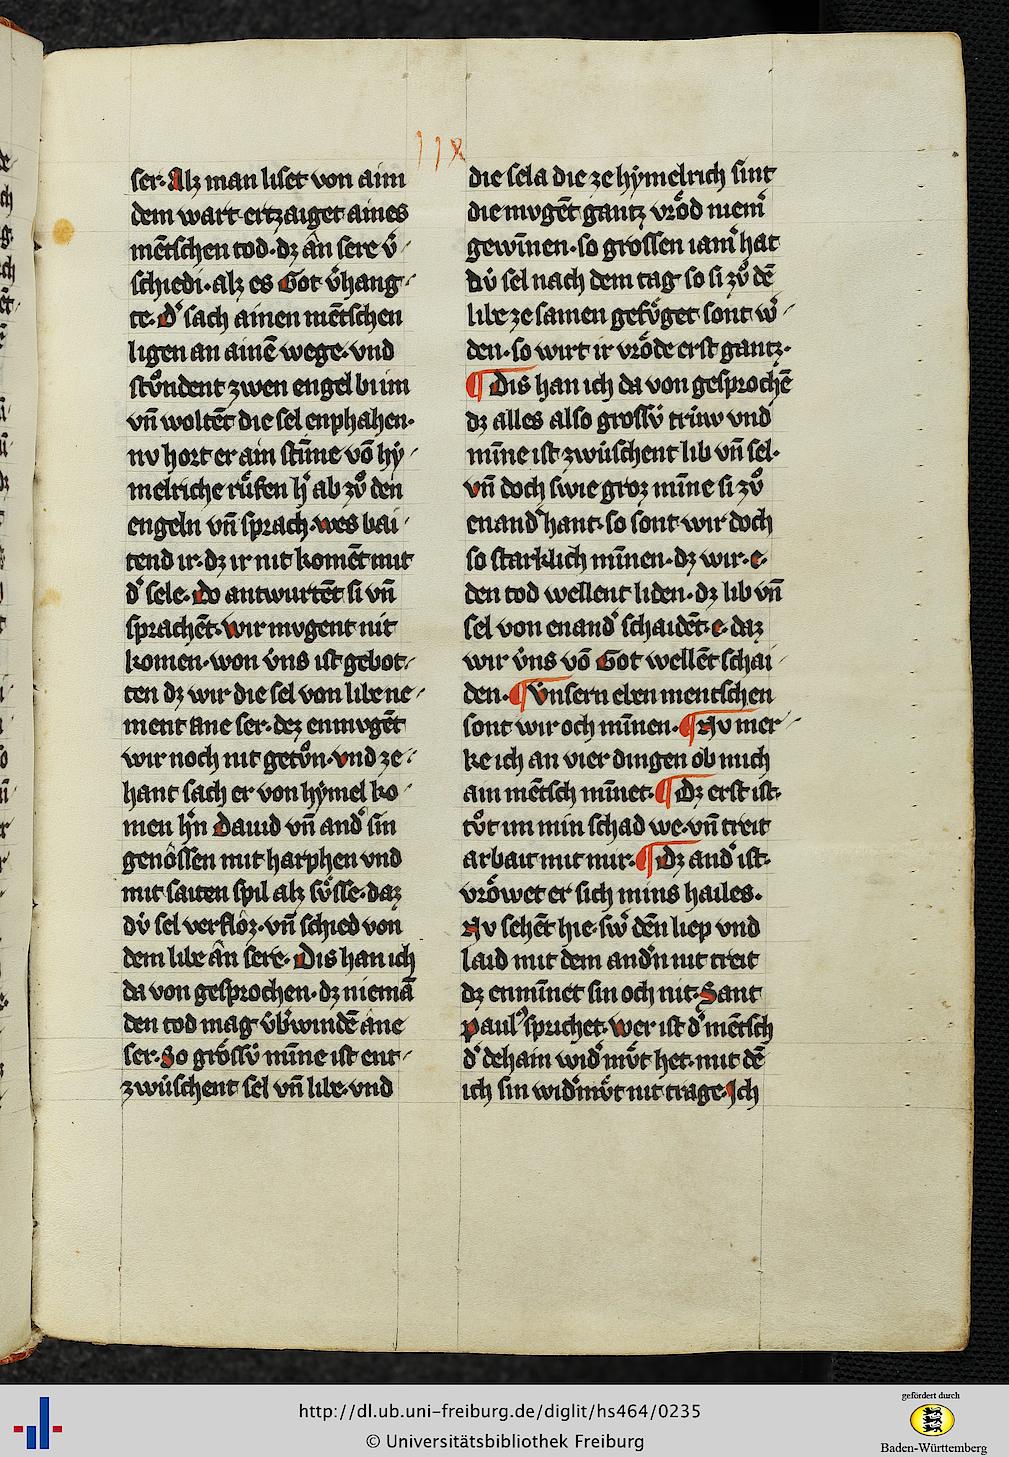 ser. Alz man liset von aim
dem wart ertzaiget aines
mētschen tod. dz ân sere v̓
schiedi. alz es Got v̓hang
te. D̓ sach ainen mētschen
ligen an ainē wege. vnd
stůndent zwen engel bi im
vn̄ woltēt die sel enphahen.
nv hort er ain stīme vō hy̓
melriche růfen h̓ ab zů den
engeln vn̄ sprach. wes bai
tend ir. dz ir nit komēt mit
d̓ sele. Do antwurtēt si vn̄
sprachēt. wir mvgent nit
komen. won v̓ns ist gebot
ten dz wir die sel von libe ne
ment ane ser. dez enmvgēt
wir noch nit getůn. vnd ze
hant sach er von hy̓mel ko
men h̓n Dauid vn̄ and̓ sin
genôssen mit harphen vnd
mit saiten spil alz sv̊sse. daz
dv̓ sel verflôz. vn̄ schied von
dem libe ân sere. Dis han ich
da von gesprochen. dz niemā
den tod mag v̓b̓windē âne
ser. So grôssv̓ mīne ist ent
zwüschent sel vn̄ libe. vnd
die sela die ze hy̓melrich sint
die mvgēt gantz vrôd niem̓
gewīnen. so grossen iam̓ hat
dv̓ sel nach dem tag so si zů dē
libe ze samen gefůget sont w̓
den. so wirt ir vrôde erst gantz.
¶ Dis han ich da von gesprochē
dz alles also grossv̓ trüw vnd
mīne ist zwüschent lib vn̄ sel.
vn̄ doch swie groz mīne si zů
enand̓ hant. so sont wir doch
so starklich mīnen. dz wir. e.
den tod wellent liden. dz lib vn̄
sel von enand̓ schaidēt. e. daz
wir v̓ns vō Got wellēt schai
den. ¶ v̓nsern eben mentschen
sont wir och mīnen. ¶ Nv mer
ke ich an vier dingen ob mich
ain mētsch mīnet. ¶ Dz erst ist.
tůt im min schad we. vn̄ treit
arbait mit mir. ¶ Dz and̓ ist.
vrôwet er sich mins hailes.
Nv sehēt hie. sw̓ dēn liep vnd
laid mit dem and̓n nit treit
dz enmīnet sin och nit. Sant
Paul̓ sprichet. wer ist d̓ mētsch
d̓ dehain wid̓ mv̊t het. mit dē
ich sin wid̓mv̊t nit trage. Ich
http://dl.ub.uni-freiburg.de/diglit/hs464/0235
© Universitätsbibliothek Freiburg
gefördert durch
Baden-Württemberg